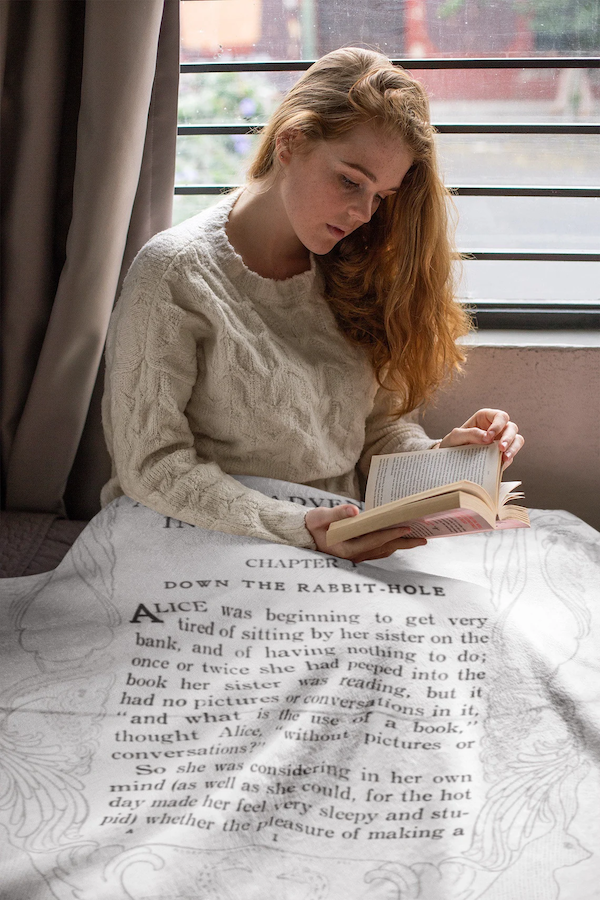 ADVEN
IN
CHAPTER I
DOWN THE RABBIT-HOLE
ALICE was beginning to get very
tired of sitting by her sister on the
bank, and of having nothing to do;
once or twice she had peeped into the
book her sister was reading, but it
had no pictures or conversations in it,
"and what is the use of a book,"
thought Alice, "without pictures or
conversations?"
So she was considering in her own
mind (as well as she could, for the hot
day made her feel very sleepy and stu-
pid) whether the pleasure of making a
A
1